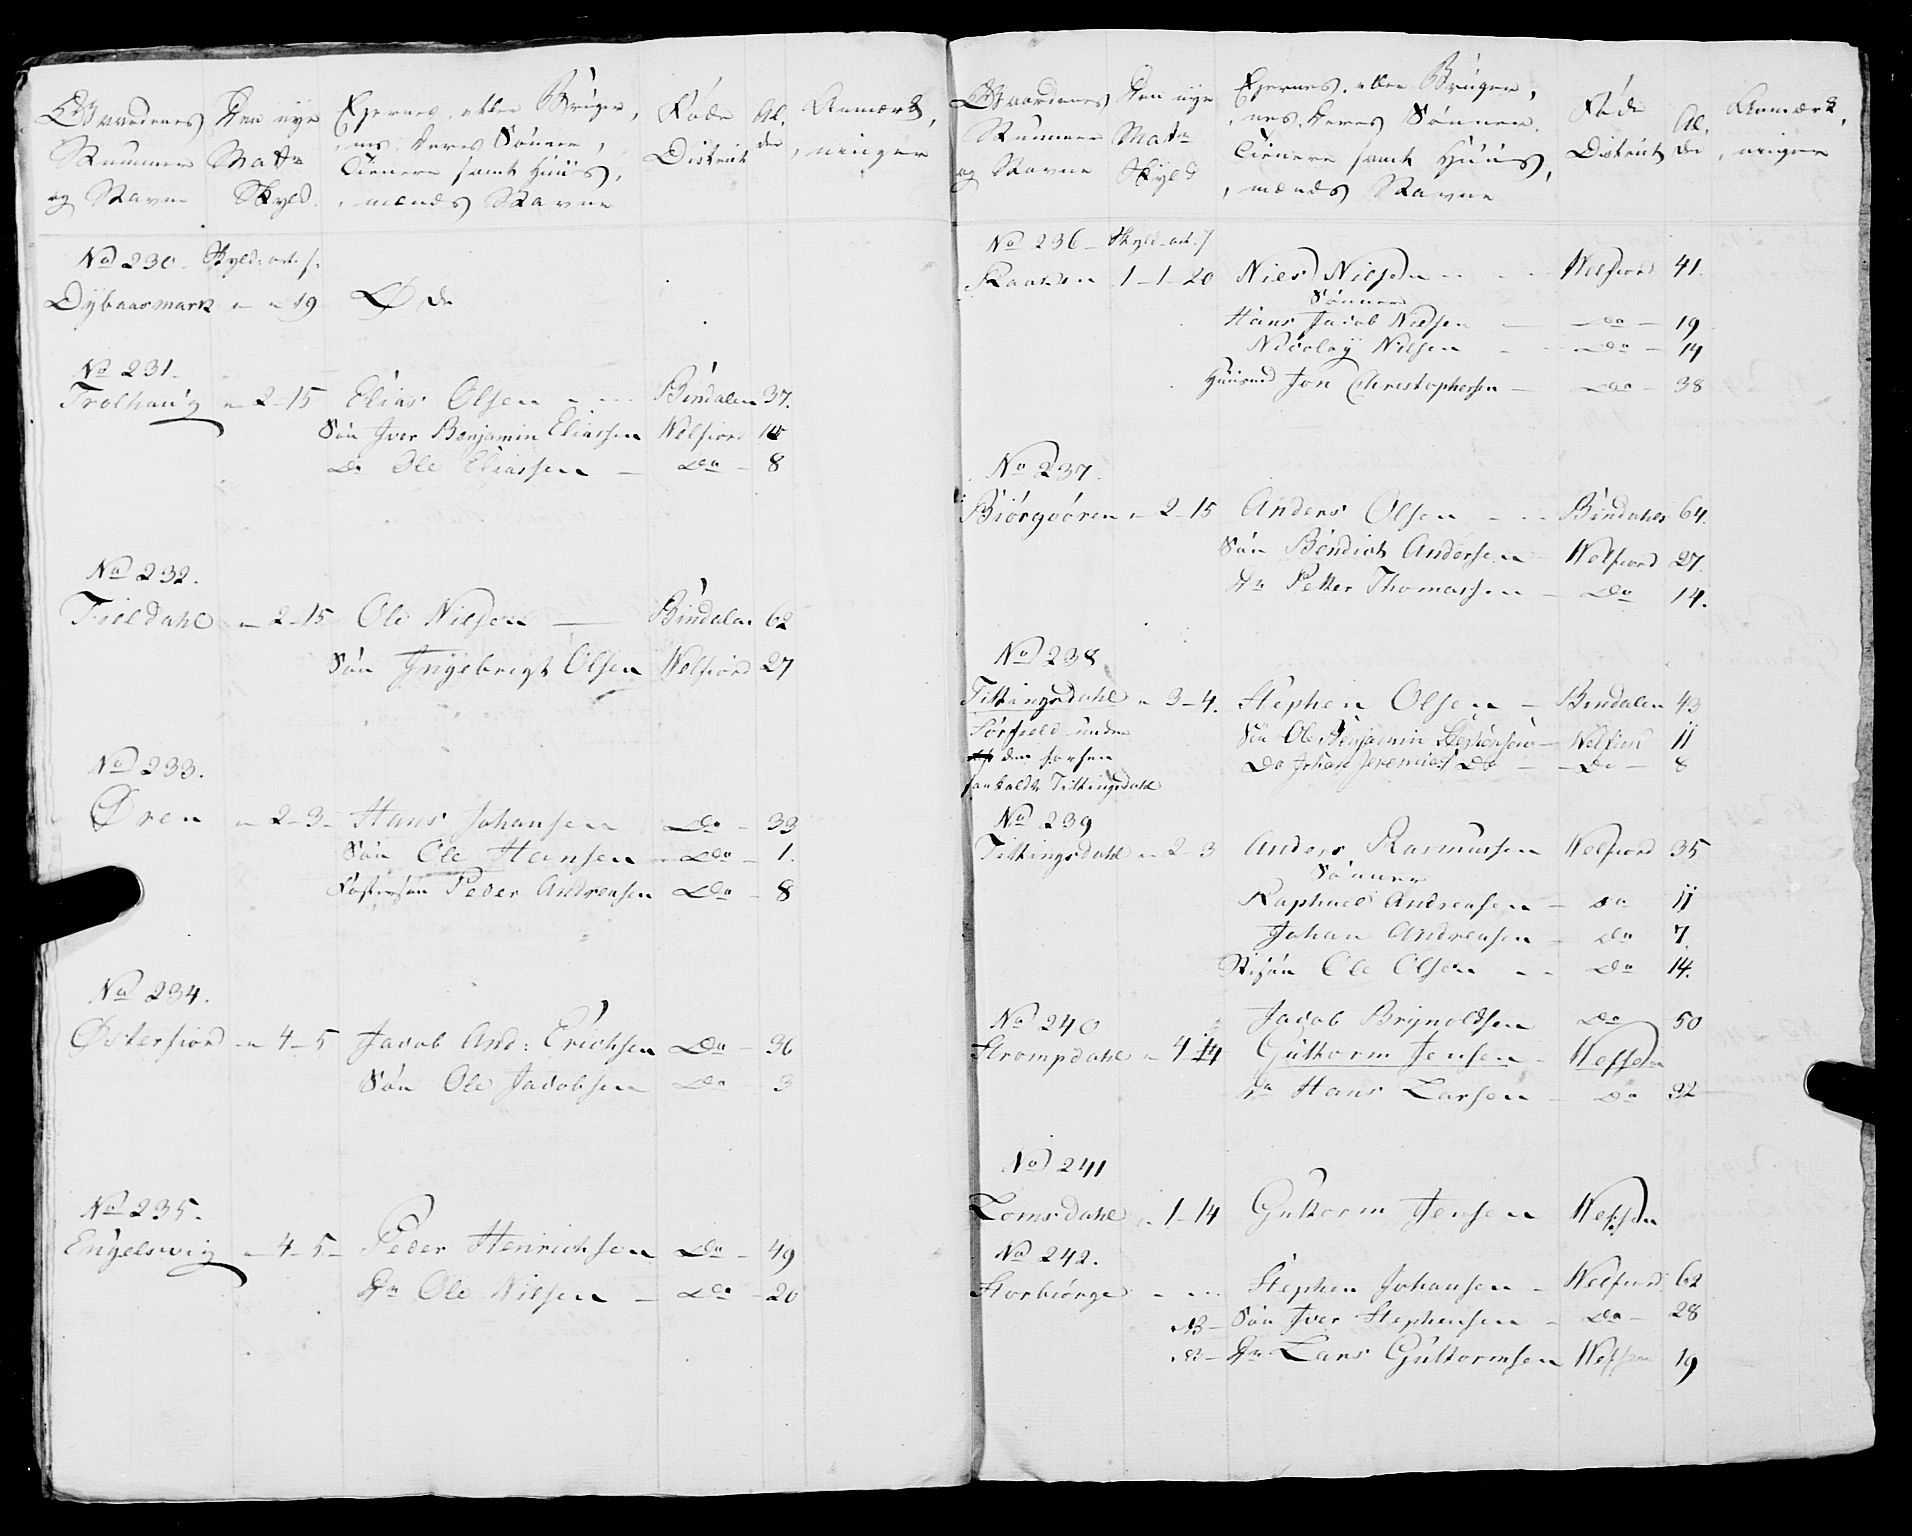 Gaardenes Nummer og Navne
Den nye Matr Skyld
Eyernes, eller Brugernes, deres Sønner, Tienere samt Huusmænds Navne
Føde Distrikt
Alder
Anmærkninger
No 230. Skyld: ort. s.
Dybaasmark " " 19 Øde
No 231.
Trolhaug " 2-15 Elias Olsen - - - Bindalen 37.
Søn Iver Benjamin Eliassen Welfiord
Do Ole Eliassen - Do - 8
No 232.
Fieldahl " 2-15 Ole Nielsen — Bindalen 62
Søn Ingebrigt Olsen Welfiord 27
No 233.
Øren " 2-3 - Hans Johansen Do - 33
Søn Ole Hansen - Do - 1.
Fostersøn Peder Andreasen Do - 8
No 234.
Østerfiord " 4-5 Jacob And: Erichsen Do - 36
Søn Ole Jacobsen Do - 3
No 235.
Engelsvig " 4-5 - Peder Henrichsen Do - 49
Dr Ole Nilsen - Do - 20
Gaardenes Nummer og Navne
Den nye Matr Skyld
Eyernes, eller Brugernes, deres Sønner, Tienere samt Huusmænds Navne
Føde Distrikt
Alder
Anmærkninger
No 236 - Skyld - ort. s
1-1-20 Niels Nielsen - - - Welfiord 41.
Sønner
Hans Jacob Nielsen - Do - 19
Nicolay Nilsen - - Do - 14
Huusmd Jon Christophersen - Do - 38
No 237.
Biørgoören " 2-15 Anders Olsen - - - Bindalen 64.
Søn Bendict Andersen - Welfiord 27.
Dr Petter Thomassen - Do 14.
No 238
Tittingsdahl " 3-4. Stephen Olsen - Bindalen 43
Sørfield under
den forhen
saakaldte Tittingsdahl
Søn Ole Benjamin Stephensen - Welfiord 11
Do Johan Jeremias Do - Do - 8
No 239
Tittingsdahl " 2-3 Anders Rasmussen Welfiord 35
Sønner
Raphael Andreasen - do 11
Johan Andreasen - Do 7.
Stifsøn Ole Olsen - - Do 14.
No 240 Jacob Brynoldsen Do 50
Strompdahl " 4-14 Guttorm Jensen - Wefsen
Dr Hans Larsen - Do 32
No 241
Lomsdahl " 1-14 Guttorm Jensen Wefsen
No 242.
Storbiørge - - - Stephen Johansen - Welfiord 62
NB - Søn Iver Stephensen - Do - 28
NB - Dr Lars Guttormsen Wefsen 19